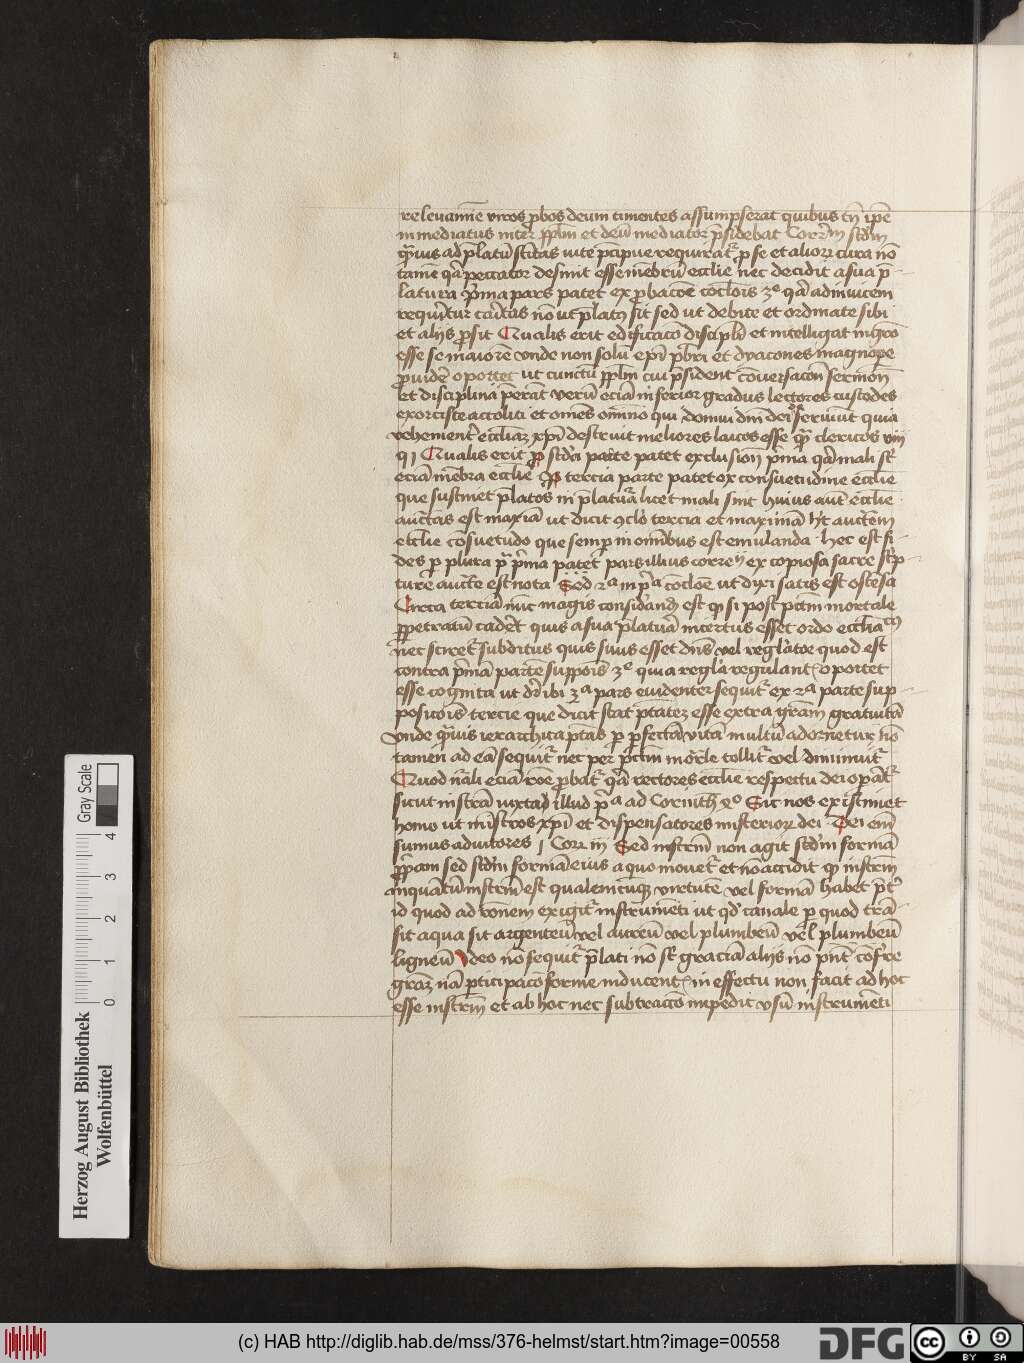 relevamīe viros ꝓbos deum timentes assumpserat quibus tn̄ ip̄e
inmediatus inter pplm̄ et deū mediator p̄sidebat
qͣuis ad p̄latū sc̄itas vite p̄cipue requirat̉ ꝓ se et alioꝝ cura nō
tamē qͣ peccator desinit esse mēbrū eccl̄ie nec decidit a sua p̄-
latura pͥma pars patet ex ꝓbacōe cōcl̄ois 3º qͣ adinuicem
requirit̉ cāritas nō ut p̄latꝰ sit sed ut debite et ordinate sibi
et alijs ꝓsit Qualis erit edificacō discipl̄i et intelligat
esse se maiorē vnde non solū ep̄i p̄bri et dyacones magnope
ꝓuidē oportet ut cunctū pplm̄ cui p̄sident cōuersacōn̄ sermon̄
et disciplina p̄erāt verū eciā inferior gradus lectores custodes
exorciste accoliti et om̄es om̄īno qui domui dm̄ dei seruiūt quia
vehementer eccliaꝫ xp̄i destruit meliores laicos esse qͣ clericos viij
q j Qualis erit patet exclusion̄ pͥma qͣ mali sūt
eciā mēbra eccl̄ie tercia parte patet ex consuetudine eccl̄ie
que sustinet p̄latos in p̄latura licet mali sint huius aut̄ eccl̄ie
auctͣtas est maxīa ut dicit ꝯclō tercia et maximā hꝫ auctͣtem
eccl̄ie cōsuetudo que semꝑ in om̄ībus est emulanda hec est si-
des ꝑ plura pͥma patet pars illius ex copiosa sacre sc̄ͥp-
ture auctͣte est nota Sed 2ª in pͥª cōcl̄oe ut dixi satis est ostēsa
Circa terciā nūc magis considerandū est qͥ si post pctm̄ mortale
ꝑpetratū caderet quis a sua p̄latura incertus esset ordo eccl̄iacꝰ
nec sciret̉ subditus quis suus esset dn̄s vel regl̄ator quod est
contra pͥmā partē supposis̄ 3º quia regl̄a regulant̉ oportet
esse cognita ut dr̄ ibi 3ª pars euidenter sequit̉ ex 2ª parte sup-
posicois̄ tercie que dicit stat p̄tatez esse extra gr̄am gratuitā
vnde qͣuis ierarchica p̄tas ꝑ ꝑfectā vitā multū adornetur nō
tamen ad eā sequit̉ nec per p̄ctm̄ mortͣle tollit̉ vel diminuit̉
Quod nr̄ali eciā rōe ꝓbat̉ qͣ rectores eccl̄ie respectu dei oꝑāt̉
sicut instr̄a iuxta illud pͥª ad Corinth̄ 4º Sic nos existimet
homo ut ministros xp̄i et dispensatores misterioꝝ dei Dei em̄
sumus adiutores j Cor iij Sed instrm̄ non agit scd̄m formā
ꝓpͥam sed scd̄m formā eius a quo mouet̉ et nō accidit qͥ instrm̄
inquātū instrm̄ est qualemcūqꝫ virtutē vel formā habet pͥt̉
id quod ad rōnem exigit̉ instrumēti ut qd̄ canale ꝑ quod trā-
sit aqua sit argenteū vel aureū vel plumbeū vel plumbeū
ligneū Ideo nō sequit̉ p̄lati nō sūt graciā alijs nō p̄nt cōferre
graꝫ nā participacō forme inducent̉ in effectu non facit ad hoc
esse instrm̄ et ab hoc nec subtraccō impedit vsū instrumēti
Gray Scale
0 1 2 3 4
Herzog August Bibliothek
Wolfenbüttel
(c) HAB http://diglib.hab.de/mss/376-helmst/start.htm?image=00558
DFG
cc
BY SA